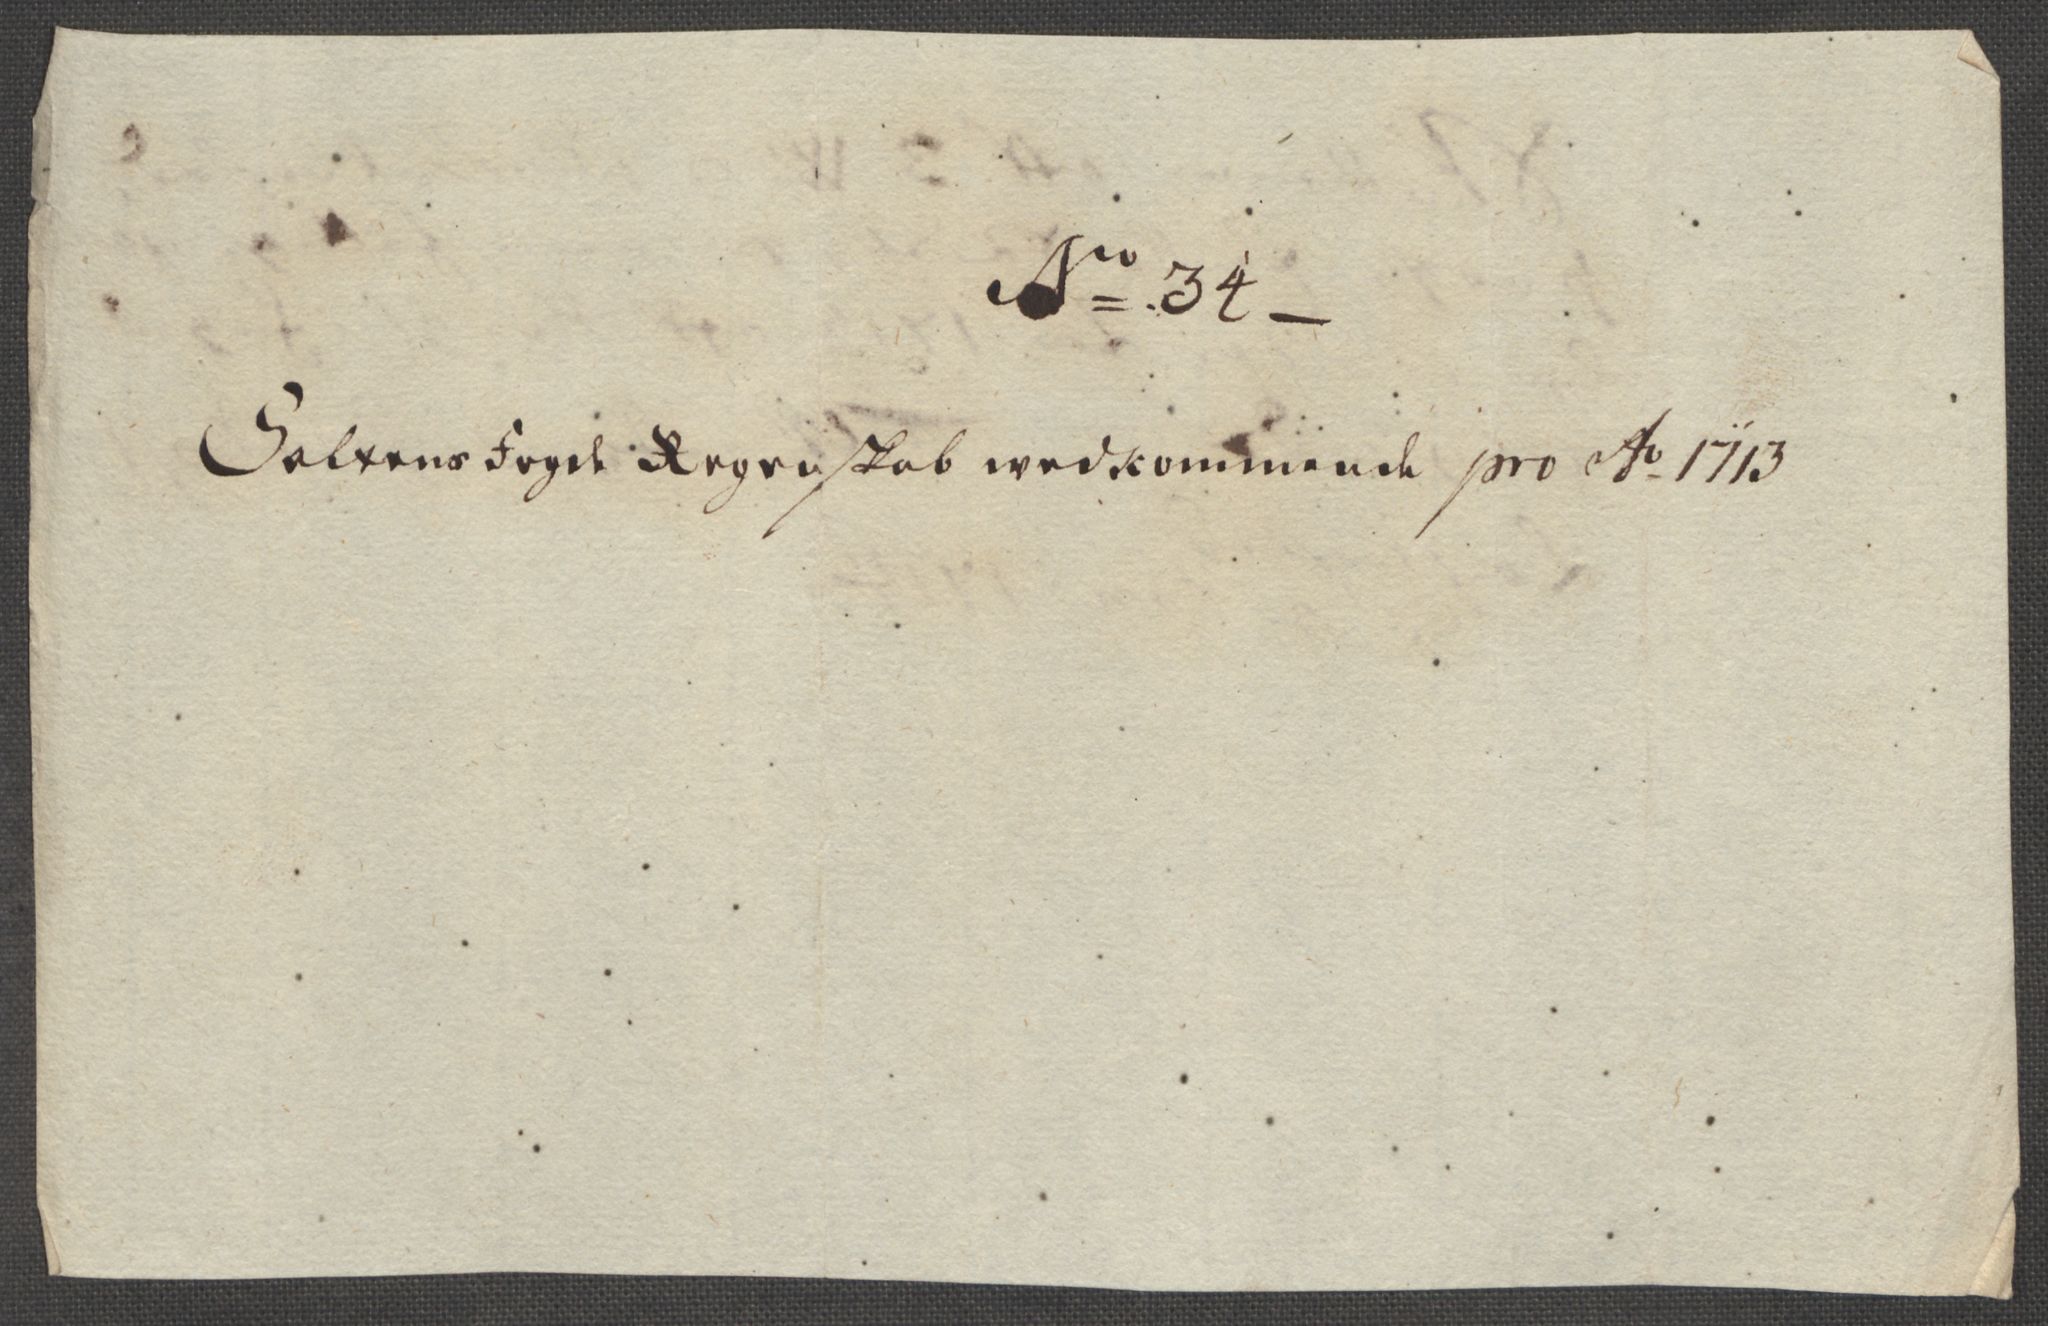 No. 34
Saltens Fogde Regenskab wedkommende pro Ao 1713